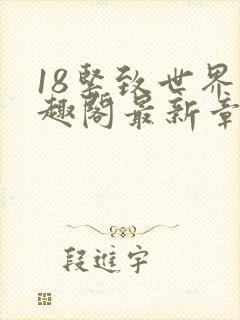 18紧致世界
趣阁最新章
段進宇